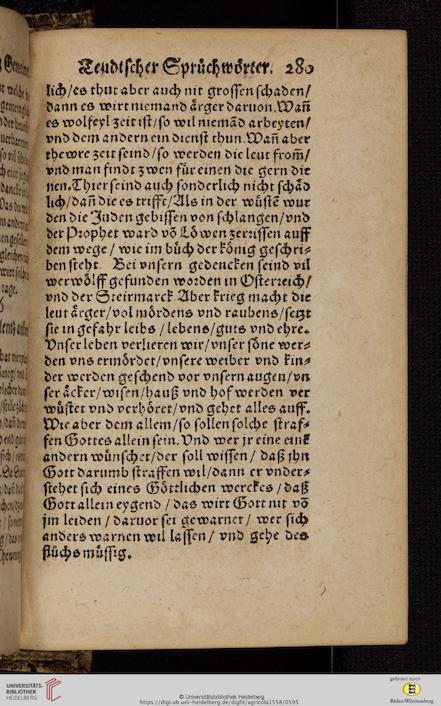 Teudtscher Sprüchwörter. 280
lich/es thut aber auch nit grossen schaden/
dann es wirt niemand ärger daruon. Wañ
es wolfeyl zeit ist/so wil niemād arbeyten/
vnd dem andern ein dienst thun. Wañ aber
thewre zeit seind/so werden die leut from̃/
vnd man findt zwen für einen die gern die
nen. Thier seind auch sonderlich nicht schäd
lich/dañ die es trifft/Als in der wüstē wur
den die Juden gebissen von schlangen/vnd
der Prophet ward vō Löwen zerrissen auff
dem wege/wie im bůch der könig geschri-
ben steht. Bei vnsern gedencken seind vil
werwölff gefunden worden in Osterreich/
vnd der Steirmarck Aber krieg macht die
leut ärger/vol mördens vnd raubens/setzt
sie in gefahr leibs/lebens/guts vnd ehre.
Vnser leben verlieren wir/vnser söne wer-
den vns ermördet/vnsere weiber vnd kin-
der werden geschend vor vnsern augen/vn
ser äcker/wisen/hauß vnd hof werden ver
wüstet vnd verhöret/vnd gehet alles auff.
Wie aber dem allem/so sollen solche straf-
fen Gottes allein sein. Vnd wer jr eine einē
andern wünschet/der soll wissen/daß jhn
Gott darumb straffen wil/dann er vnder-
stehet sich eines Göttlichen werckes/daß
Gott allein eygend/das wirt Gott nit vō
jm leiden/daruor sei gewarnet/wer sich
anders warnen wil lassen/vnd gehe des
flůchs müssig.
UNIVERSITÄTS-
BIBLIOTHEK
HEIDELBERG
© Universitätsbibliothek Heidelberg
https://digi.ub.uni-heidelberg.de/diglit/agricola1558/0595
gefördert durch
Baden-Württemberg